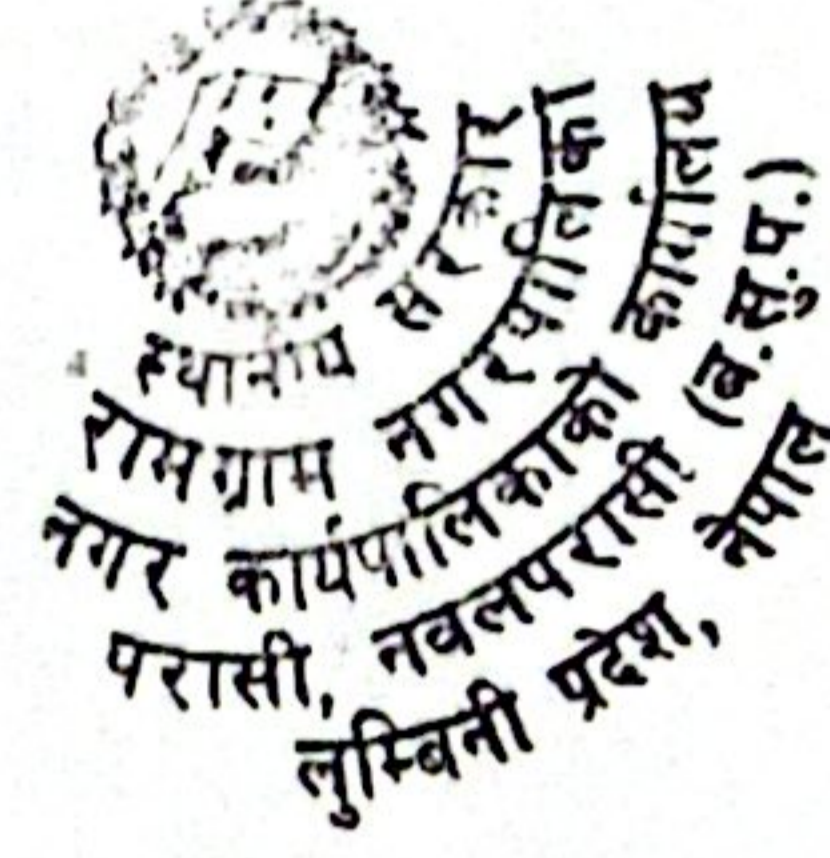 स्थानीय सरकार
रामग्राम नगरपालिका
नगर कार्यपालिकाको कार्यालय
परासी, नवलपरासी (ब.सु.प.)
लुम्बिनी प्रदेश, नेपाल